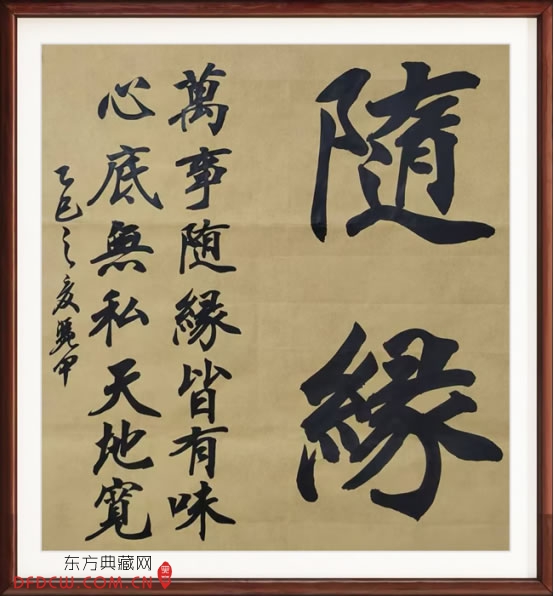 隨緣
萬事随緣皆有味
心底無私天地寬
乙巳之夏
东方典藏网
DFDCW.COM.CN